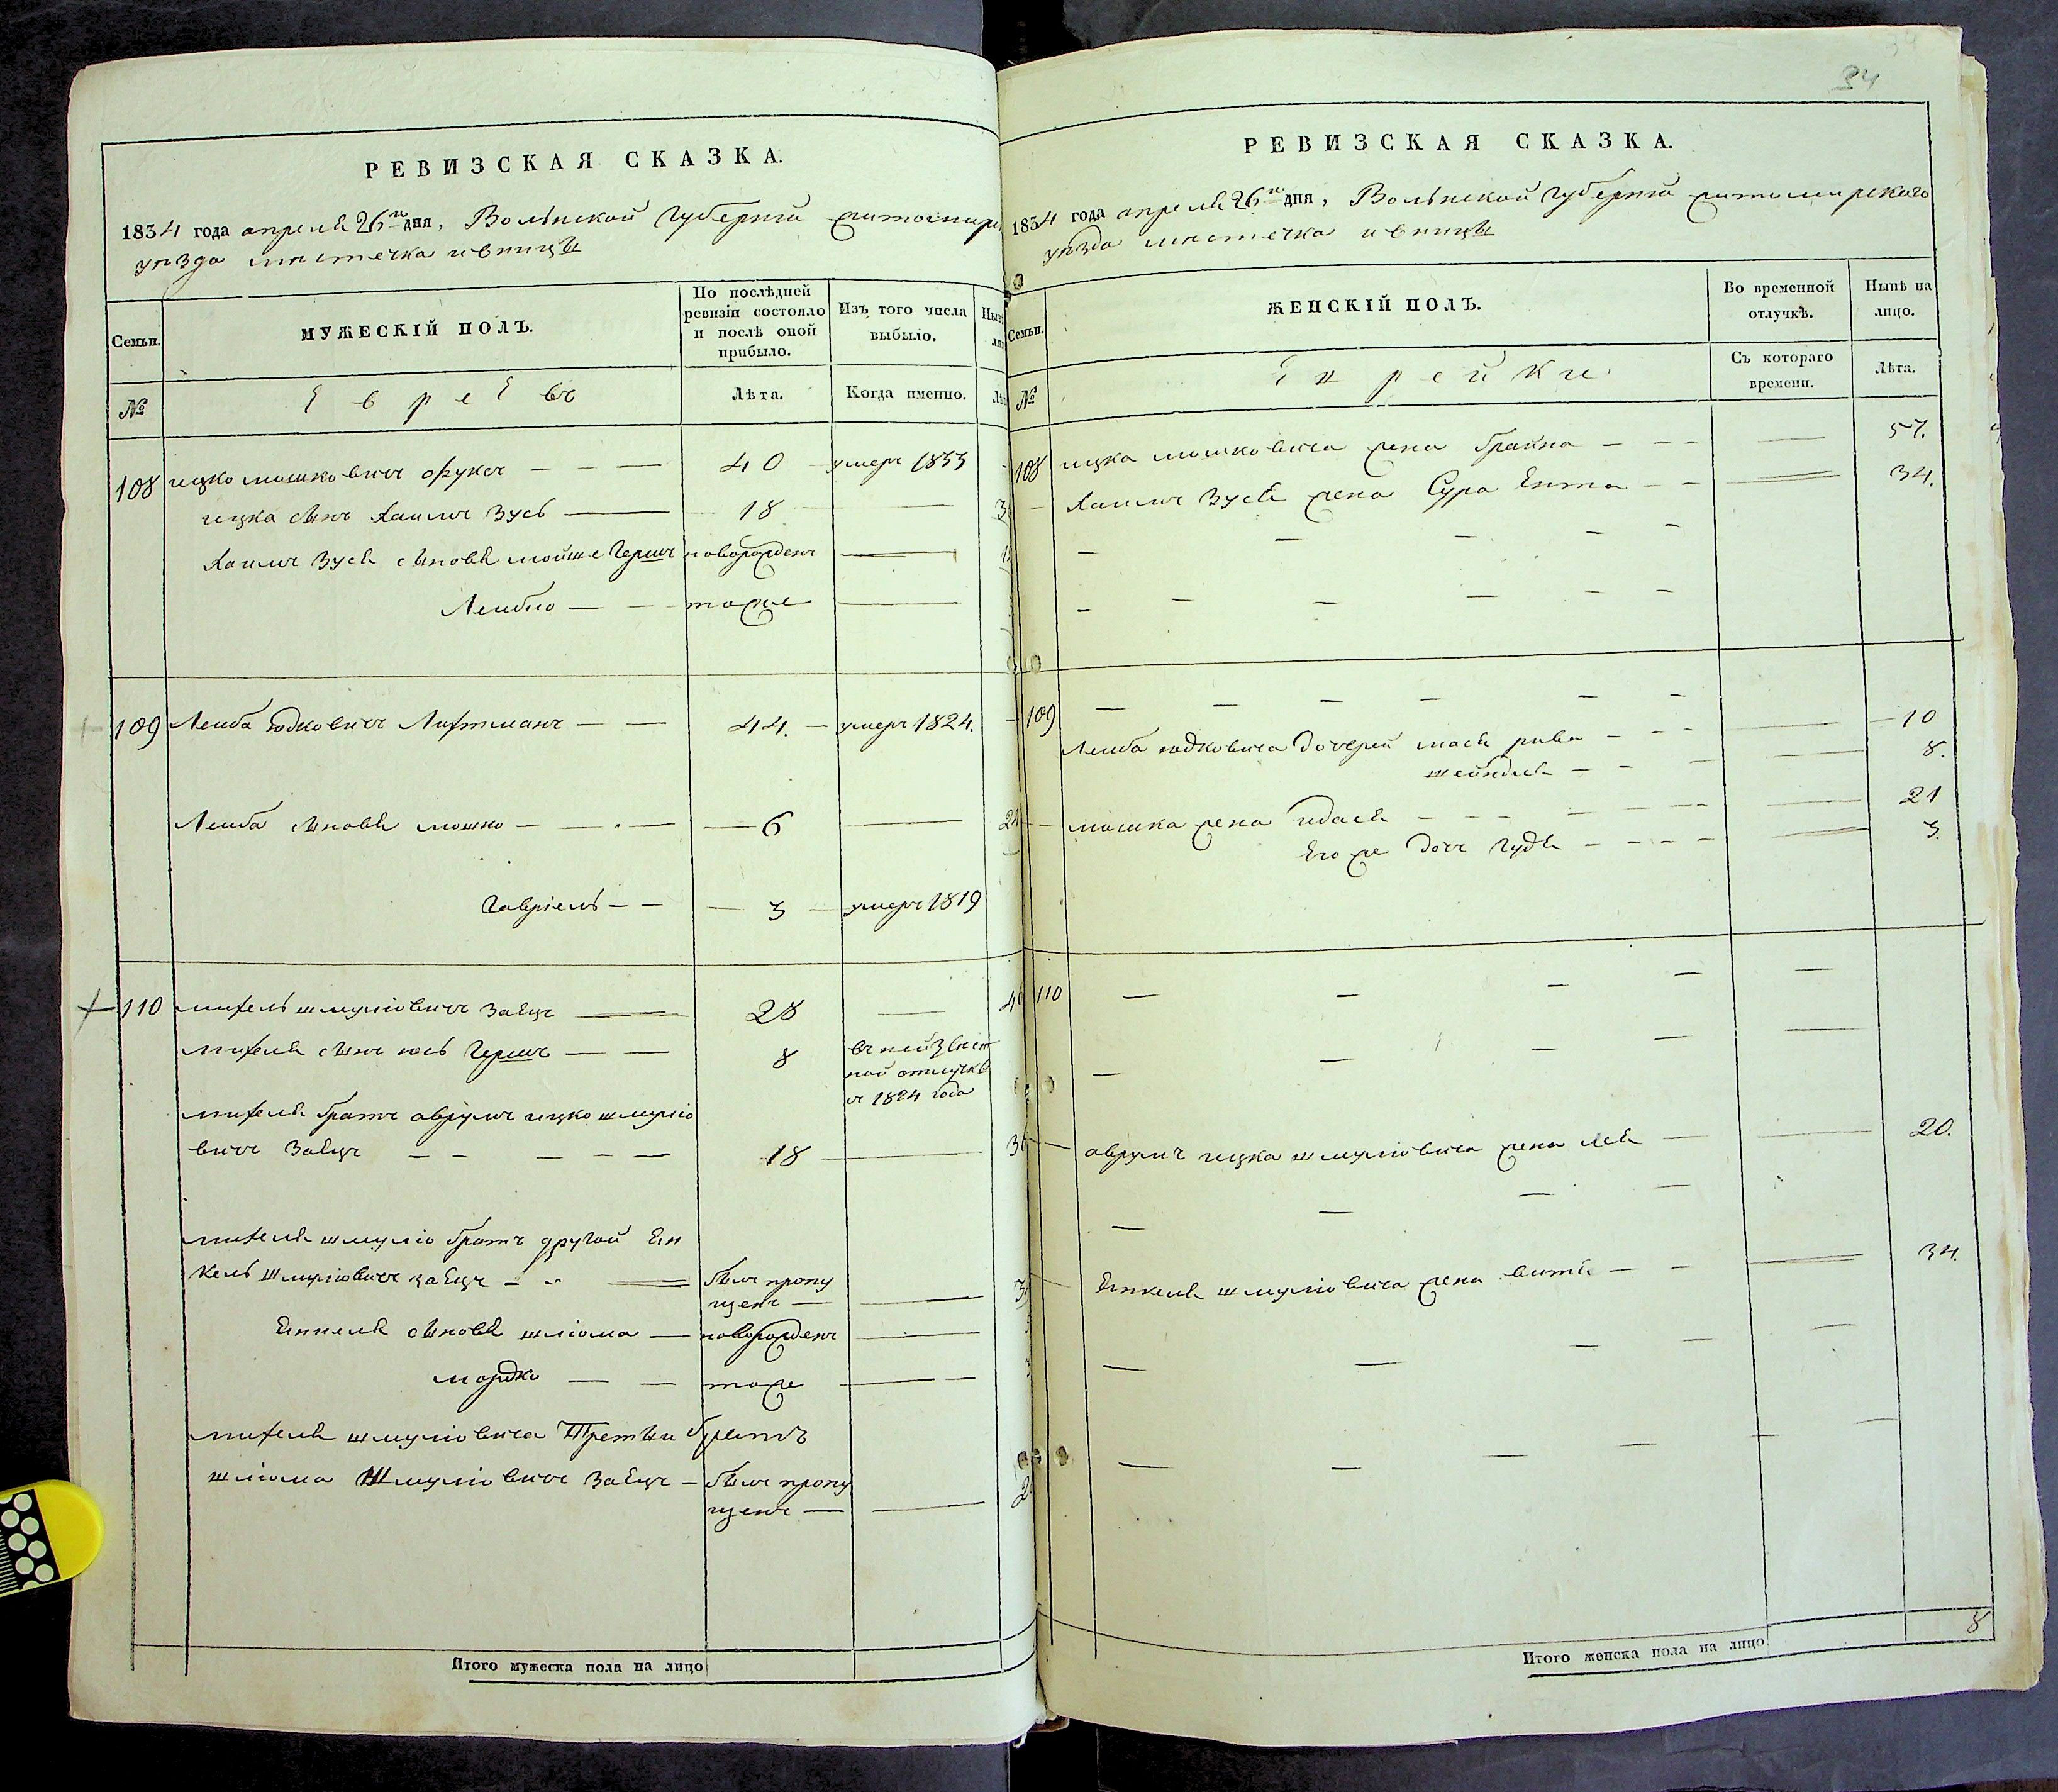 РЕВИЗСКАЯ СКАЗКА.
1834 года апреля 26го дня, Волынской Губернiи Житомирс
уѣзда мѣстечка ивницы
Семьи.
МУЖЕСКІЙ ПОЛЪ.
По послѣдней ревизіи состояло и послѣ оной прибыло.
Изъ того числа выбыло.
№
Евреевъ
Лѣта.
Когда именно.
108 ицко мошковичъ Фуксъ — — — 40 умеръ 1833
ицка сынъ Хаимъ Зусь — 18 —
Хаимъ Зуся сыновья мойше Гершъ новорожденъ —
Лейбіо — — тоже —
109 Лейба юдковичъ Лифтманъ — — 44. — умеръ 1824.
Лейба сыновья мошко — — — 6 — 24
Гавріель — — 3 — умеръ 1819
110 михель шмуліовичъ Заецъ — 28 — 46
михеля сынъ іось Гершъ — — 8 въ неизвѣст
ной отлучкѣ
съ 1824 года
михеля братъ аврумъ ицко шмуліо
вичъ Заецъ — — — — — 18 —
михеля шмуліо братъ другой Ян
кель шмуліовичъ заецъ — — — былъ пропу
щенъ — —
Янкеля сыновья шліома — новорожденъ —
мордко — — тоже — —
михеля шмуліовича Третьи братъ
шліома Шмуліовичъ Заецъ — былъ пропу
щенъ — —
Итого мужеска пола на лицо
34
РЕВИЗСКАЯ СКАЗКА.
1834 года апреля 26го дня, Волынской Губернiи Житомирскаго
уѣзда мѣстечка ивницы
Семьи.
ЖЕНСКІЙ ПОЛЪ.
Во временной отлучкѣ.
Нынѣ на лицо.
№
Еврейки
Съ котораго времени.
Лѣта.
108 ицка мошковича жена бракна — — — — 57.
— Хаимъ Зуся жена Сура Ента — — — 34.
109 — — — — — —
Лейба юдковича дочерей мася рива — — — — 10
шейндля — — — — 8.
— мошка жена идася — — — — — — 21
Его же дочь гудя — — — — — 3.
110 — — — — —
— — — — — —
— аврумъ ицка шмуліовича жена лея — — 20.
— — — —
— Янкеля шмуліовича жена витя — — — 34.
— — — — —
— — — — — —
Итого женска пола на лицо 8